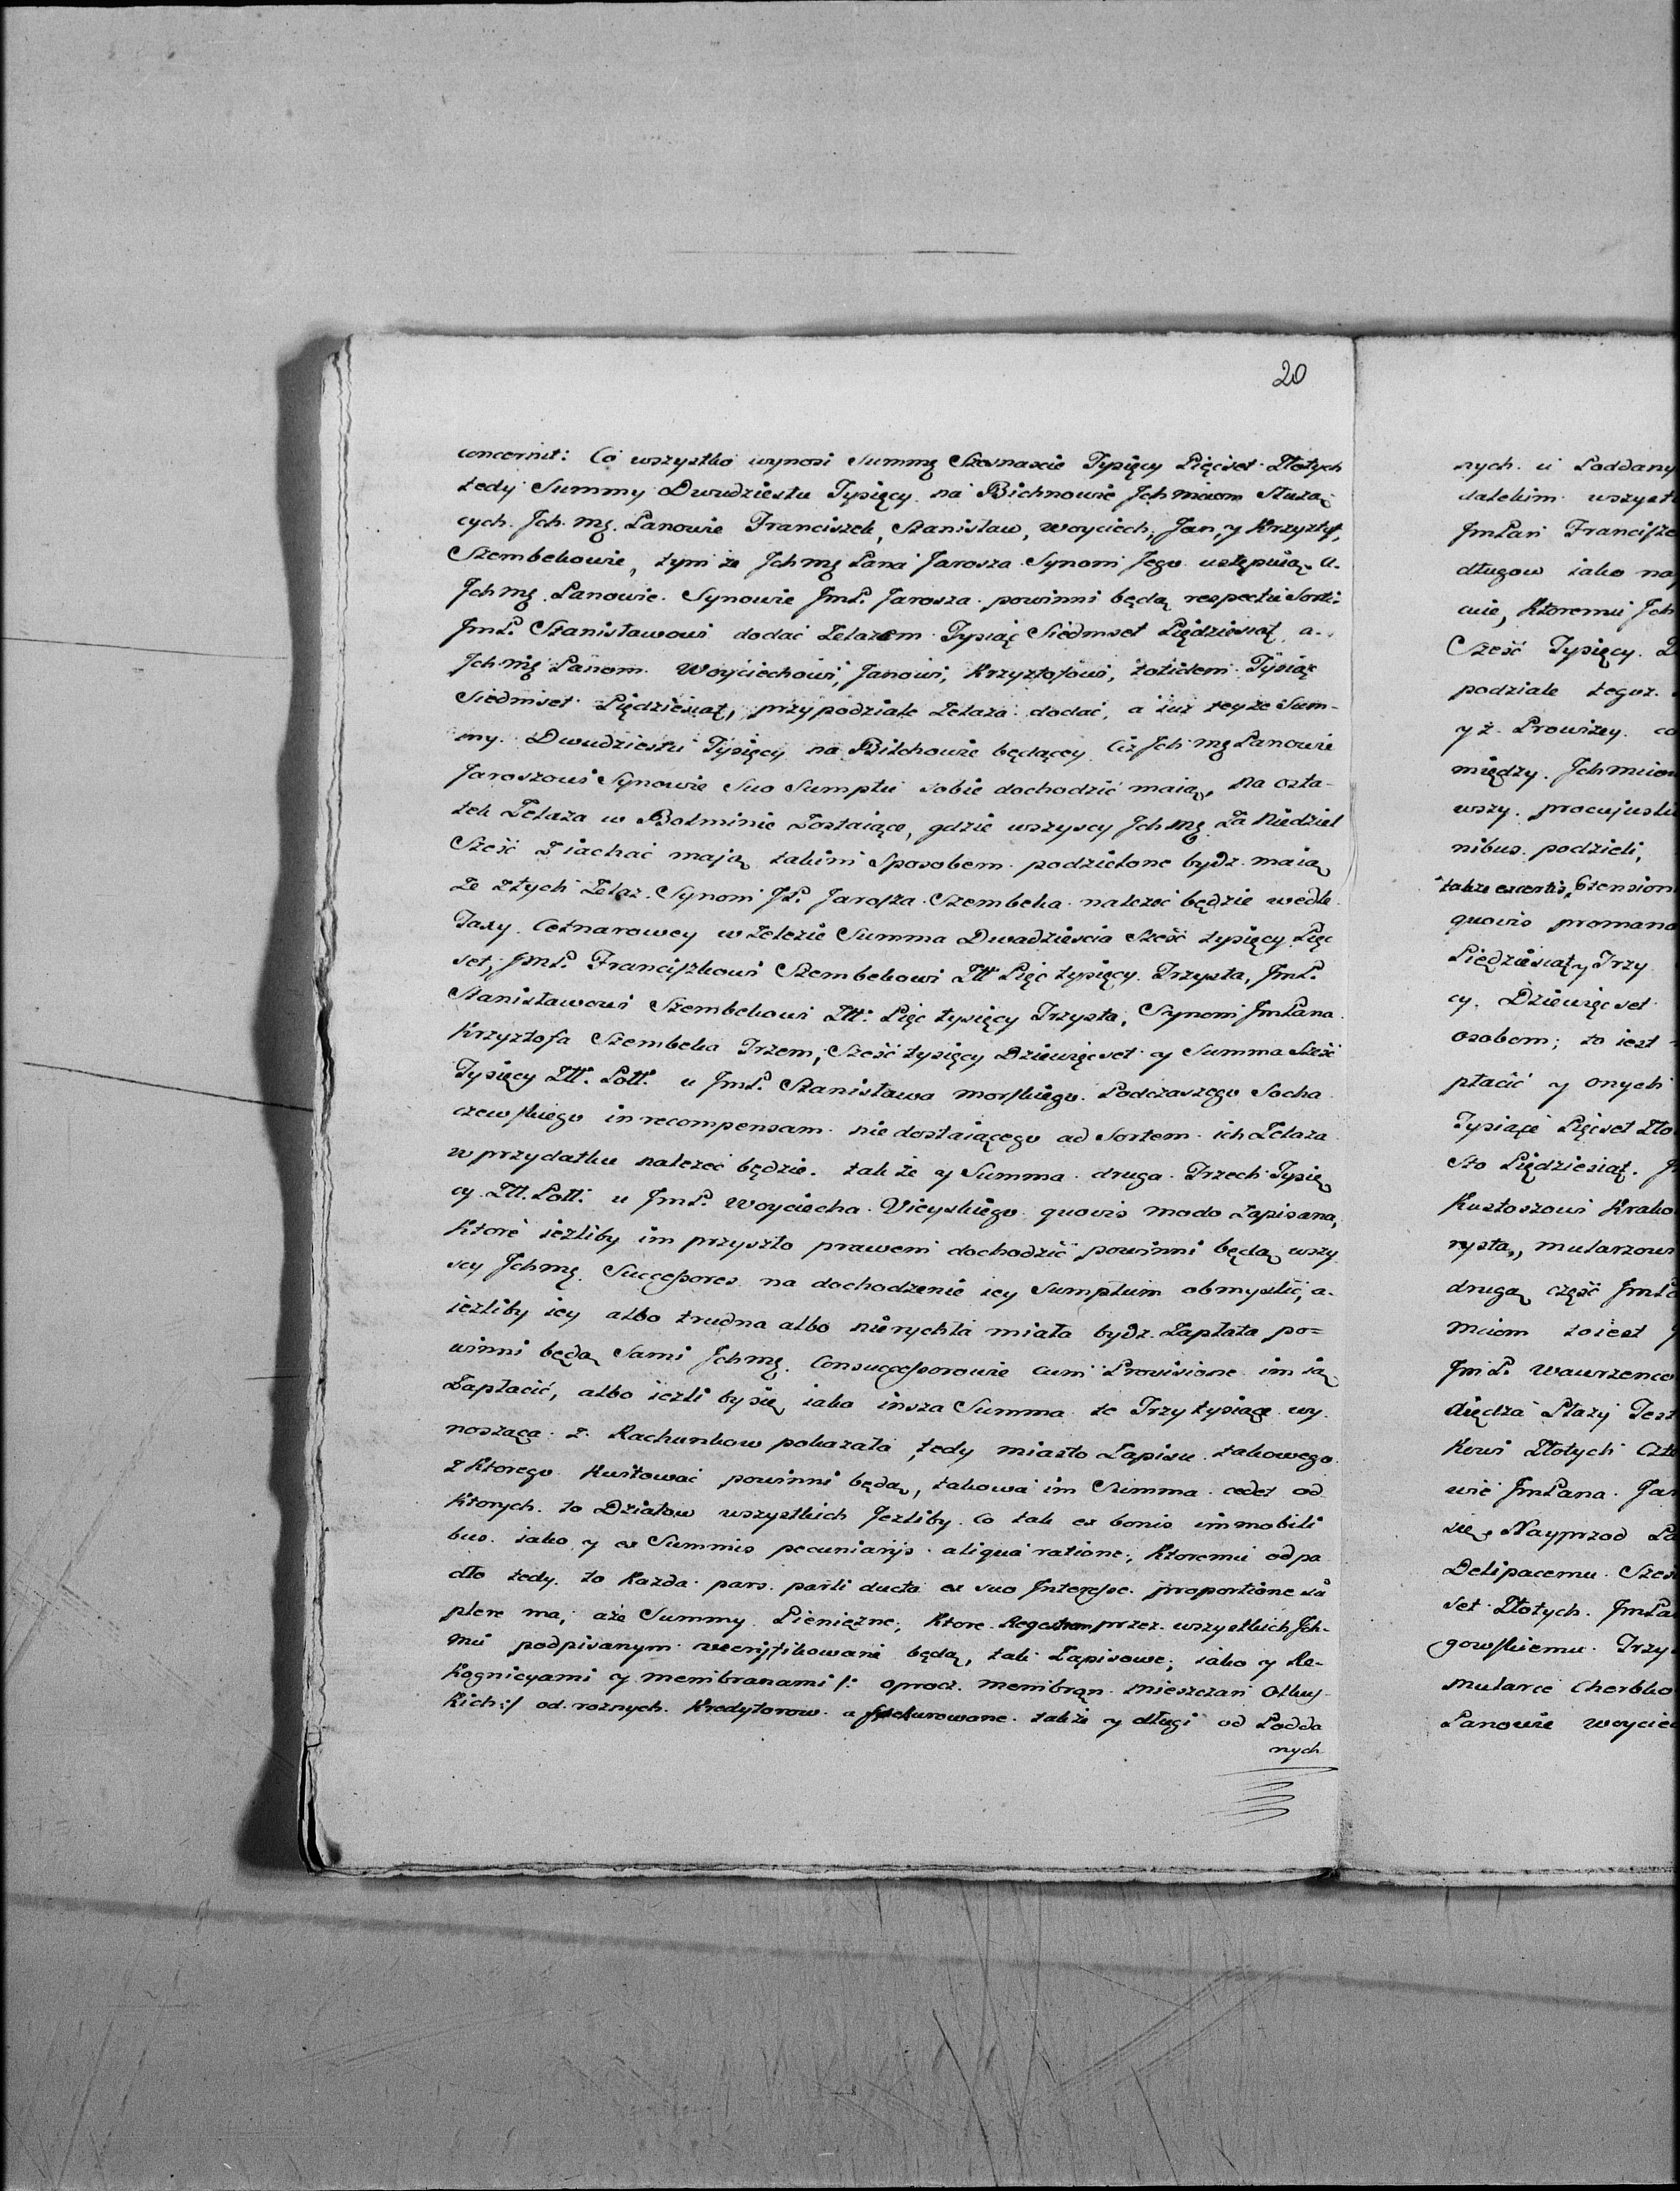 20
concernit: Co wszystko wynosi Summę Szesnascie Tysięcy Pięćset Złotych
tedy Summy Dwudziestu Tysięcy na Bichnowie Jchmciom Słuzą-
cych. Jch. Mę. Panowie Franciszek, Stanisław, Woyciech, Jan, y Krzysztof,
Szembekowie, tym ze Jchmę Pana Jarosza Synom Jego ustępuią. a.
Jchmę. Panowie. Synowie JmP. Jarosza powinni będą respectu Sorti:
JmP. Stanisławowi dodać Zelazem Tysiąc Siedmset Piędziesiąt, a.
Jchmę Panom. Woyciechowi, Janowi, Krzysztofowi, totidem Tysiąc
Siedmset Piędziesiąt, przy podziale Zelaza dodać, a iuz teyze Sum-
my. Dwudziestu Tysięcy na Bilchowie będącey Ciz Jch mę Panowie
Jaroszowi Synowie Suo Sumptu sobie dochodzić maią, na osta-
tek Zelaza w Bolminie Zostaiące, gdzie wszyscy Jchmę Za Niedziel
Sześć Ziachać mają takim Sposobem podzielone bydz maią
Ze Złych Zelaz. Synom JP. Jarosza Szembeka nalezeć będzie wedle
Taxy Cetnarowey w Zelezie Summa Dwadziescia Sześć tysięcy Pięc
set, JmP. Franciszkowi Szembekowi Złł Pięc tysięcy Trzysta, JmP.
Stanisławowi Szembekowi Złł: Pięc tysięcy Trzysta, Synom JmPana
Krzysztofa Szembeka Trzem, Sześć tysięcy Dziewięcset y Summa Sześć
Tysięcy Złł. Poll. u JmP. Stanisława Morskiego Podczaszego Socha
czewskiego in recompensam nie dostaiącego ad Sortem ich Zelaza
w przydatku nalezeć będzie. takze y Summa druga Trzech Tysię
cy Złł. Poll: u JmP. Woyciecha Vieyskiego quovis modo Zapisana,
Ktore iezliby im przyszło prawem dochodzić powinni będą wszy
scy Jchmę. Successores na dochodzenie iey Sumptum obmyslić, a.
iezliby iey albo trudna albo nierychła miała bydz Zapłata po=
winni będą Sami Jchmę. Consuccessorowie cum Provisione im ią
Zapłacić, albo iezli by się iaka insza Summa te Trzy tysiące wy
nosząca z Rachunkow pokazała, tedy miasto Zapisu takowego
z Ktorego Kwitować powinni będą, takowa im Summa cedet od
Ktorych to Działow wszystkich Jezliby co tak ex bonis immobili
bus iako y ex Summis pecuniarys aliqua ratione, Ktoremu odpa
dło tedy to Kazda pars parti ducta ex suo Interesse proportione su
plere ma, aze Summy Pienięzne, Ktore Regestrem przez wszystkich Jch-
mć podpisanym będą, tak Zapisowe, iako y Re-
kognicyami y membranami /: oprocz membran Mieszczan Olkus-
kich:/ od roznych Kredytorow assekurowane takze y długi od Podda
nych
nych u Poddany
dalekim wszyst
JmPan Francisze
długow iako na
cuie, Ktoremu Jch
Sześć Tysięcy Z
podziale tegoz
y z Prowizey co
między Jchmciom
wszy
nibus podzieli,
quovis promana
Piędziesiąt y Trzy
cy. Dziewięcset
osobom; to iest
płacić y onych
Tysiące Pięcset Zło
Sto Piędziesiąt. J
Kustoszowi Krako
rysta, mularzowi
drugą część JmPa
Mciom to iest J
JmP. Wawrzenco
Kowi Złotych Czte
wie JmPana Jar
się. Nayprzod Pa
Delipacemu Szes
set Złotych. JmPa
gowskiemu Trzy
Panowie Woyciec